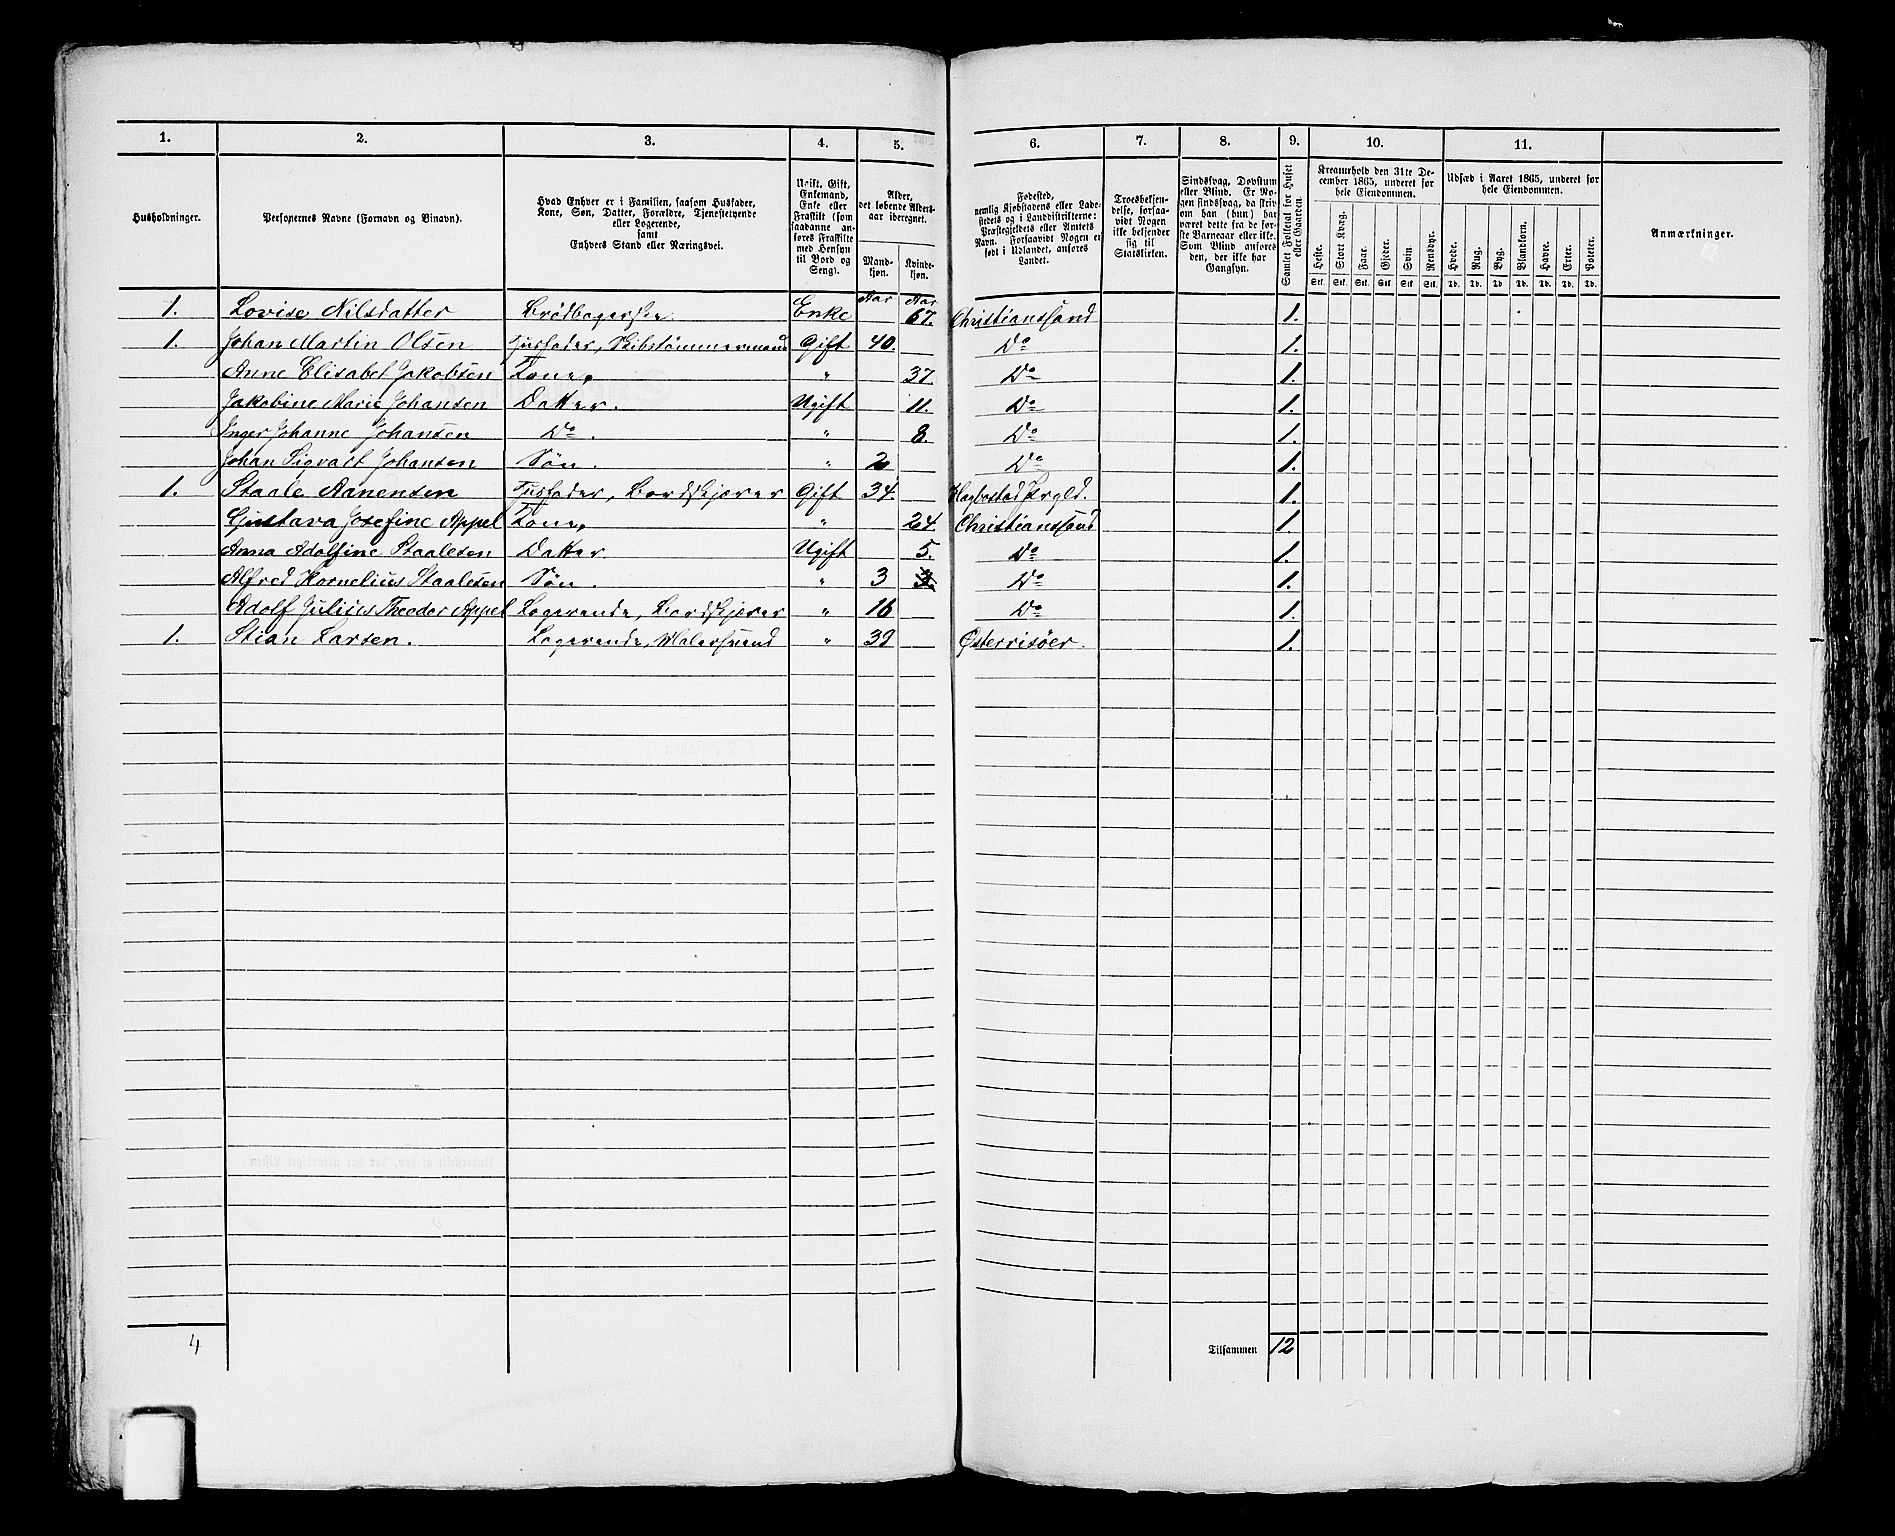 1. 2. 3. 4. 5. 6. 7. 8. 9. 10. 11.
Husholdninger.
Personernes Navne (Fornavn og Binavn).
Hvad Enhver er i Familien, saasom Husfader,
Kone, Søn, Datter, Forældre, Tjenestetyende
eller Logerende,
samt
Enhvers Stand eller Næringsvei.
Ugift, Gift,
Enkemand,
Enke eller
Fraskilt (som
saadanne an-
føres Fraskilte
med Hensyn
til Bord og
Seng).
Alder,
det løbende Alders-
aar iberegnet.
Mand-
kjøn.
Kvinde-
kjøn.
Fødested,
nemlig Kjøbstadens eller Lade-
stedets og i Landdistrikterne:
Præstegjeldets eller Amtets
Navn. Forsaavidt Nogen er
født i Udlandet, anføres
Landet.
Troesbekjen-
delse, forsaa-
vidt Nogen
ikke bekjender
sig til
Statskirken.
Sindssvag, Døvstum
eller Blind. Er No-
gen sindssvag, da skriv
om han (hun) har
været dette fra de før-
ste Barneaar eller ikke.
Som Blind anføres
den, der ikke har
Gangsyn.
Samlet Folketal for Huset
eller Gaarden.
Kreaturhold den 31te De-
cember 1865, underet for
hele Eiendommen.
Heste. Stort Kvæg. Faar. Gjeder. Svin. Rensdyr.
Stk. Stk. Stk. Stk. Stk. Stk.
Udsæd i Aaret 1865, underet for
hele Eiendommen.
Hvede. Rug. Byg. Blandkorn. Havre. Erter. Poteter.
Td. Td. Td. Td. Td. Td. Td.
Anmærkninger.
Aar Aar
1. Lovise Nilsdatter Brødbagerske Enke 67. Christianssand 1.
1. Johan Martin Olsen Husfader, Skibstømmermand Gift 40. Do 1.
Anne Elisabet Jakobsen Kone, " 37. Do 1.
Jakobine Marie Johansen Datter. Ugift 11. Do 1.
Inger Johanne Johansen Do. " 8. Do 1.
Johan Sigvart Johansen Søn. " 2 Do 1.
1. Staale Aanensen Husfader, Bordskjærer Gift 34. Hægbostad Prgld. 1.
Gustava Josefine Appel Kone, " 24. Christianssand 1.
Anna Adolfine Staalesen Datter Ugift 5. Do 1.
Alfred Kornelius Staalesen Søn. " 3 3. Do 1.
Adolf Julius Theodor Appel Logerende, Bordskjærer " 16 Do 1.
1. Stian Larsen. Logerende, Malersvend " 39 Østerrisøer. 1.
4 Tilsammen 12